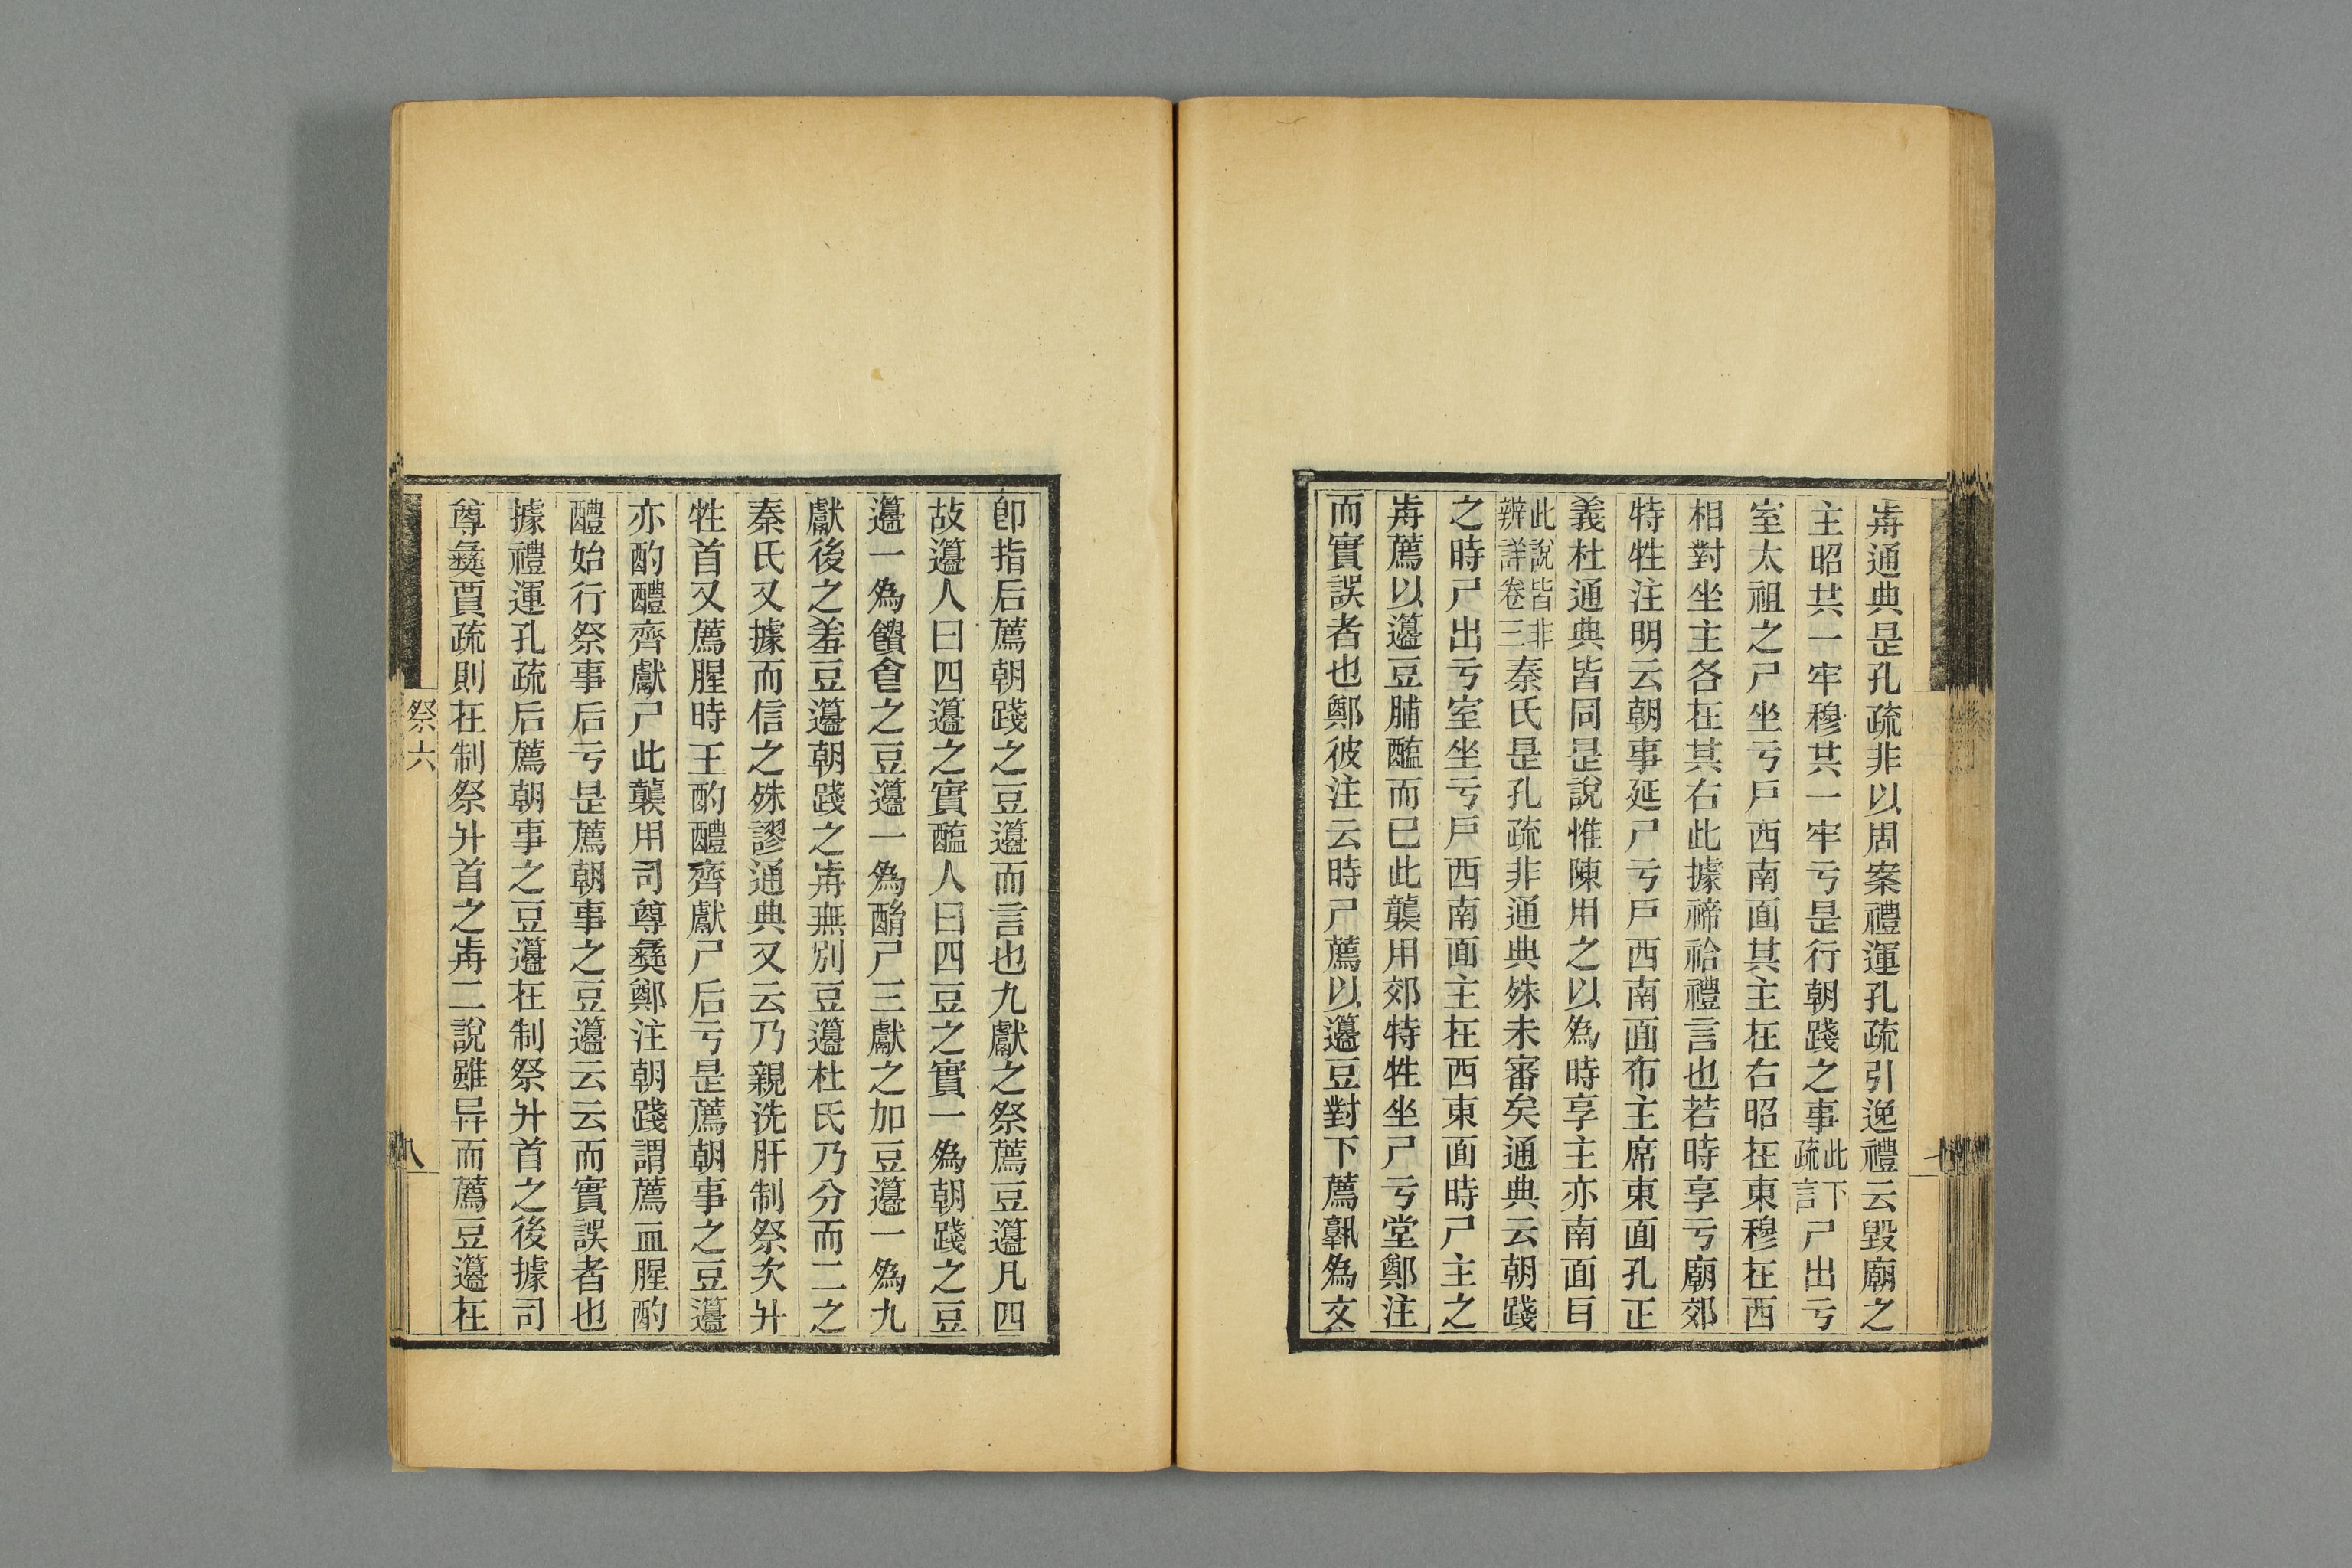 歬通典是孔疏非以周案禮運孔疏引逸禮云毀廟之
主昭共一牢穆共一牢亏是行朝踐之事此下疏言尸出亏
室太祖之尸坐亏戶西南面其主在右昭在東穆在西
相對坐主各在其右此據禘祫禮言也若時享亏廟郊
特牲注明云朝事延尸亏戶西南面布主席東面孔正
義杜通典皆同是說惟陳用之以爲時享主亦南面目
此說皆非辨詳卷三秦氏是孔疏非通典殊未審矣通典云朝踐
之時尸出亏室坐亏戶西南面主在西東面時尸主之
歬薦以籩豆脯醢而已此襲用郊特牲坐尸亏堂鄭注
而實誤者也鄭彼注云時尸薦以籩豆對下薦孰爲文
卽指后薦朝踐之豆籩而言也九獻之祭薦豆籩凡四
故籩人曰四籩之實醢人曰四豆之實一爲朝踐之豆
籩一爲饋食之豆籩一爲酳尸三獻之加豆籩一爲九
獻後之羞豆籩朝踐之歬無別豆籩杜氏乃分而二之
秦氏又據而信之殊謬通典又云乃親洗肝制祭次升
牲首又薦腥時王酌醴齊獻尸后亏是薦朝事之豆籩
亦酌醴齊獻尸此襲用司尊彝鄭注朝踐謂薦血腥酌
醴始行祭事后亏是薦朝事之豆籩云云而實誤者也
據禮運孔疏后薦朝事之豆籩在制祭升首之後據司
尊彝賈疏則在制祭升首之歬二說雖异而薦豆籩在
祭六
八